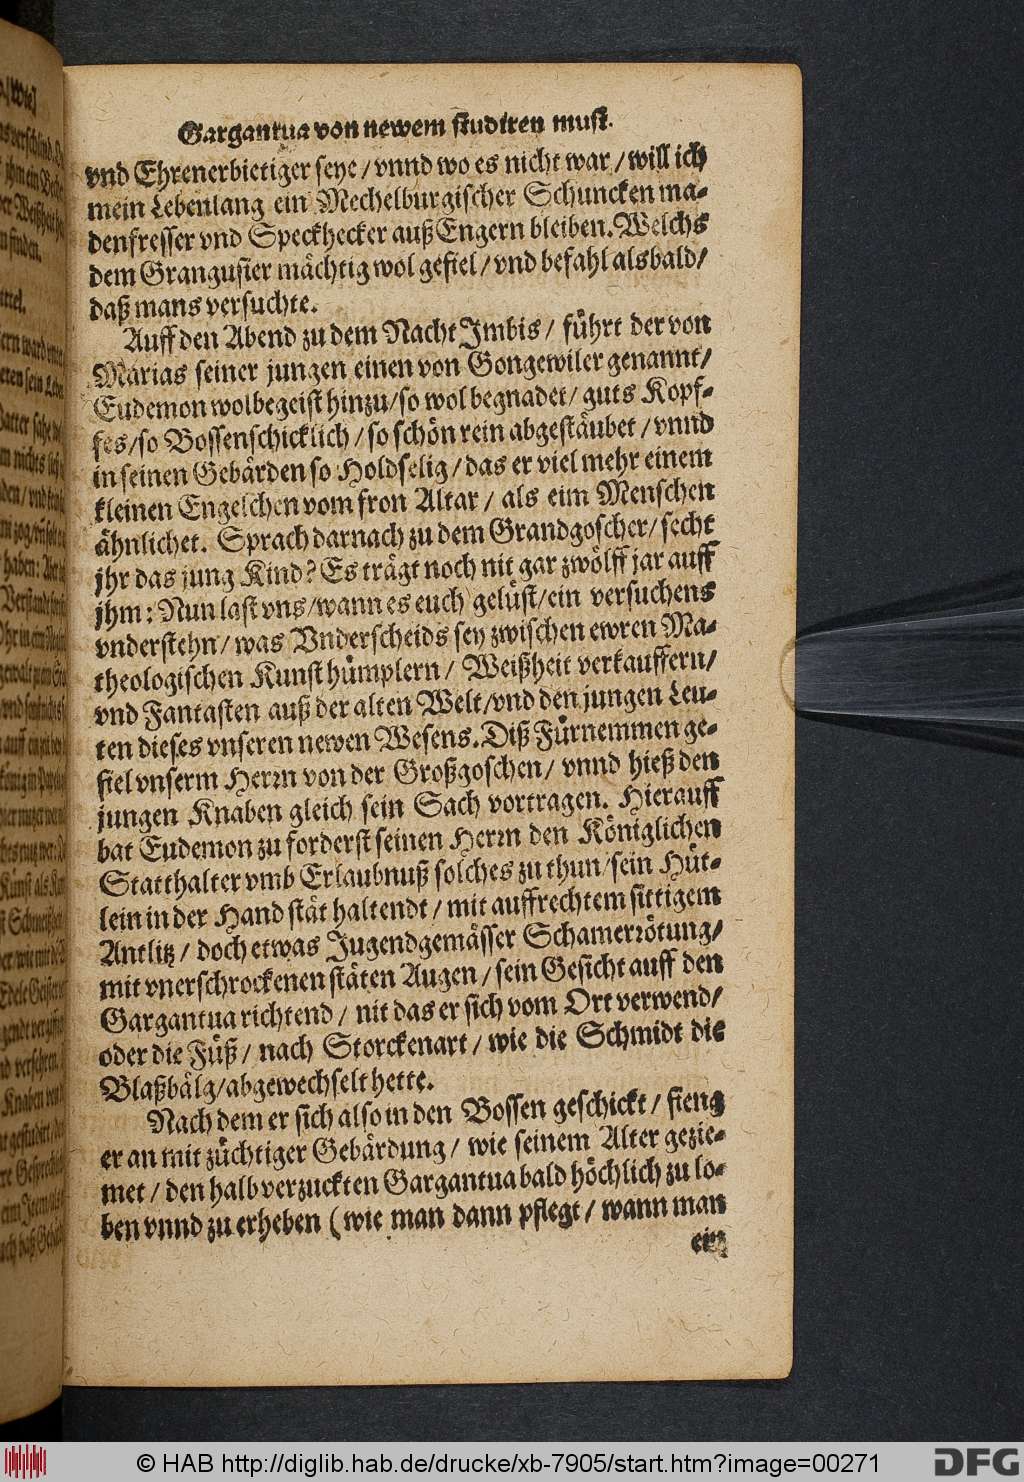 Gargantua von newem studiren must.
vnd Ehrenerbietiger seye / vnnd wo es nicht war / will ich
mein Lebenlang ein Mechelburgischer Schuncken ma-
denfresser vnd Speckhecker auß Engern bleiben. Welchs
dem Grangusier mächtig wol gefiel / vnd befahl alsbald /
daß mans versuchte.
Auff den Abend zu dem Nacht Imbis / führt der von
Marias seiner jungen einen von Gongewiler genannt /
Eudemon wolbegeist hinzu / so wol begnadet / guts Kopf-
fes / so Bossenschicklich / so schön rein abgestäubet / vnnd
in seinen Gebärden so Holdselig / das er viel mehr einem
kleinen Engelchen vom fron Altar / als eim Menschen
ähnlichet. Sprach darnach zu dem Grandgoscher / secht
jhr das jung Kind? Es trägt noch nit gar zwölff jar auff
jhm: Nun last vns / wann es euch gelüst / ein versuchens
vnderstehn / was Vnderscheids sey zwischen ewren Ma-
theologischen Kunst hümplern / Weißheit verkauffern /
vnd Fantasten auß der alten Welt / vnd den jungen Leu-
ten dieses vnseren newen Wesens. Diß Fürnemmen ge-
fiel vnserm Herrn von der Großgoschen / vnnd hieß den
jungen Knaben gleich sein Sach vortragen. Hierauff
bat Eudemon zu forderst seinen Herrn den Königlichen
Statthalter vmb Erlaubnuß solches zu thun / sein Hüt-
lein in der Hand stät haltendt / mit auffrechtem sittigem
Antlitz / doch etwas Jugendgemässer Schamerrötung /
mit vnerschrockenen stäten Augen / sein Gesicht auff den
Gargantua richtend / nit das er sich vom Ort verwend /
oder die Füß / nach Storckenart / wie die Schmidt die
Blaßbälg / abgewechselt hette.
Nach dem er sich also in den Bossen geschickt / fieng
er an mit züchtiger Gebärdung / wie seinem Alter gezie-
met / den halb verzuckten Gargantua bald höchlich zu lo-
ben vnnd zu erheben (wie man dann pflegt / wann man
ein
© HAB http://diglib.hab.de/drucke/xb-7905/start.htm?image=00271
DFG